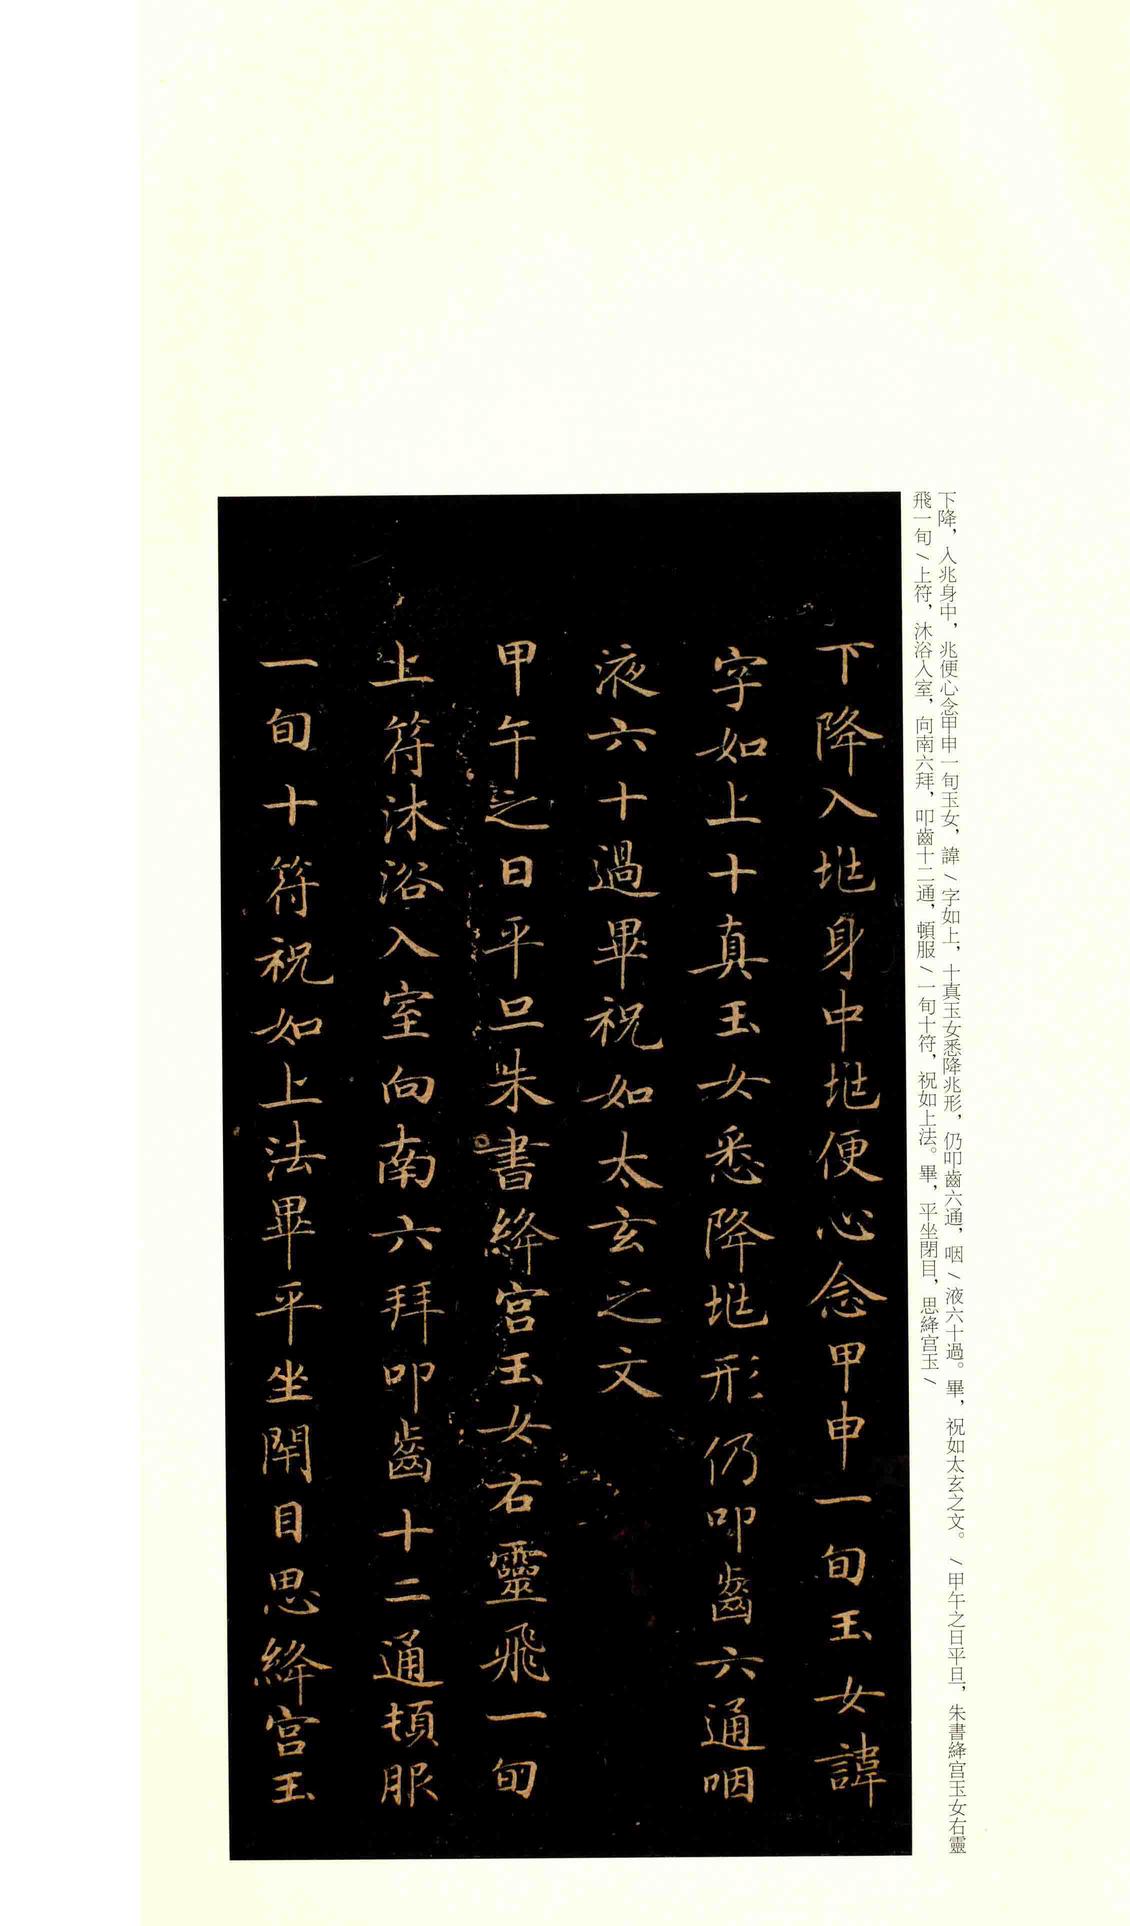 下降，入兆身中，兆便心念甲申一旬玉女，諱/字如上，十真玉女悉降兆形，仍叩齒六通，咽/液六十過。畢，祝如太玄之文。/甲午之日平旦，朱書絳宫玉女右靈
飛一旬/上符，沐浴入室，向南六拜，叩齒十二通，頓服/一旬十符，祝如上法。畢，平坐閉目，思絳宫玉/
下降入垗身中垗便心念甲申一旬玉女諱
字如上十真玉女悉降垗形仍叩齒六通咽
液六十過畢祝如太玄之文
甲午之日平旦朱書絳宫玉女右靈飛一旬
上符沐浴入室向南六拜叩齒十二通頓服
一旬十符祝如上法畢平坐閇目思絳宫玉